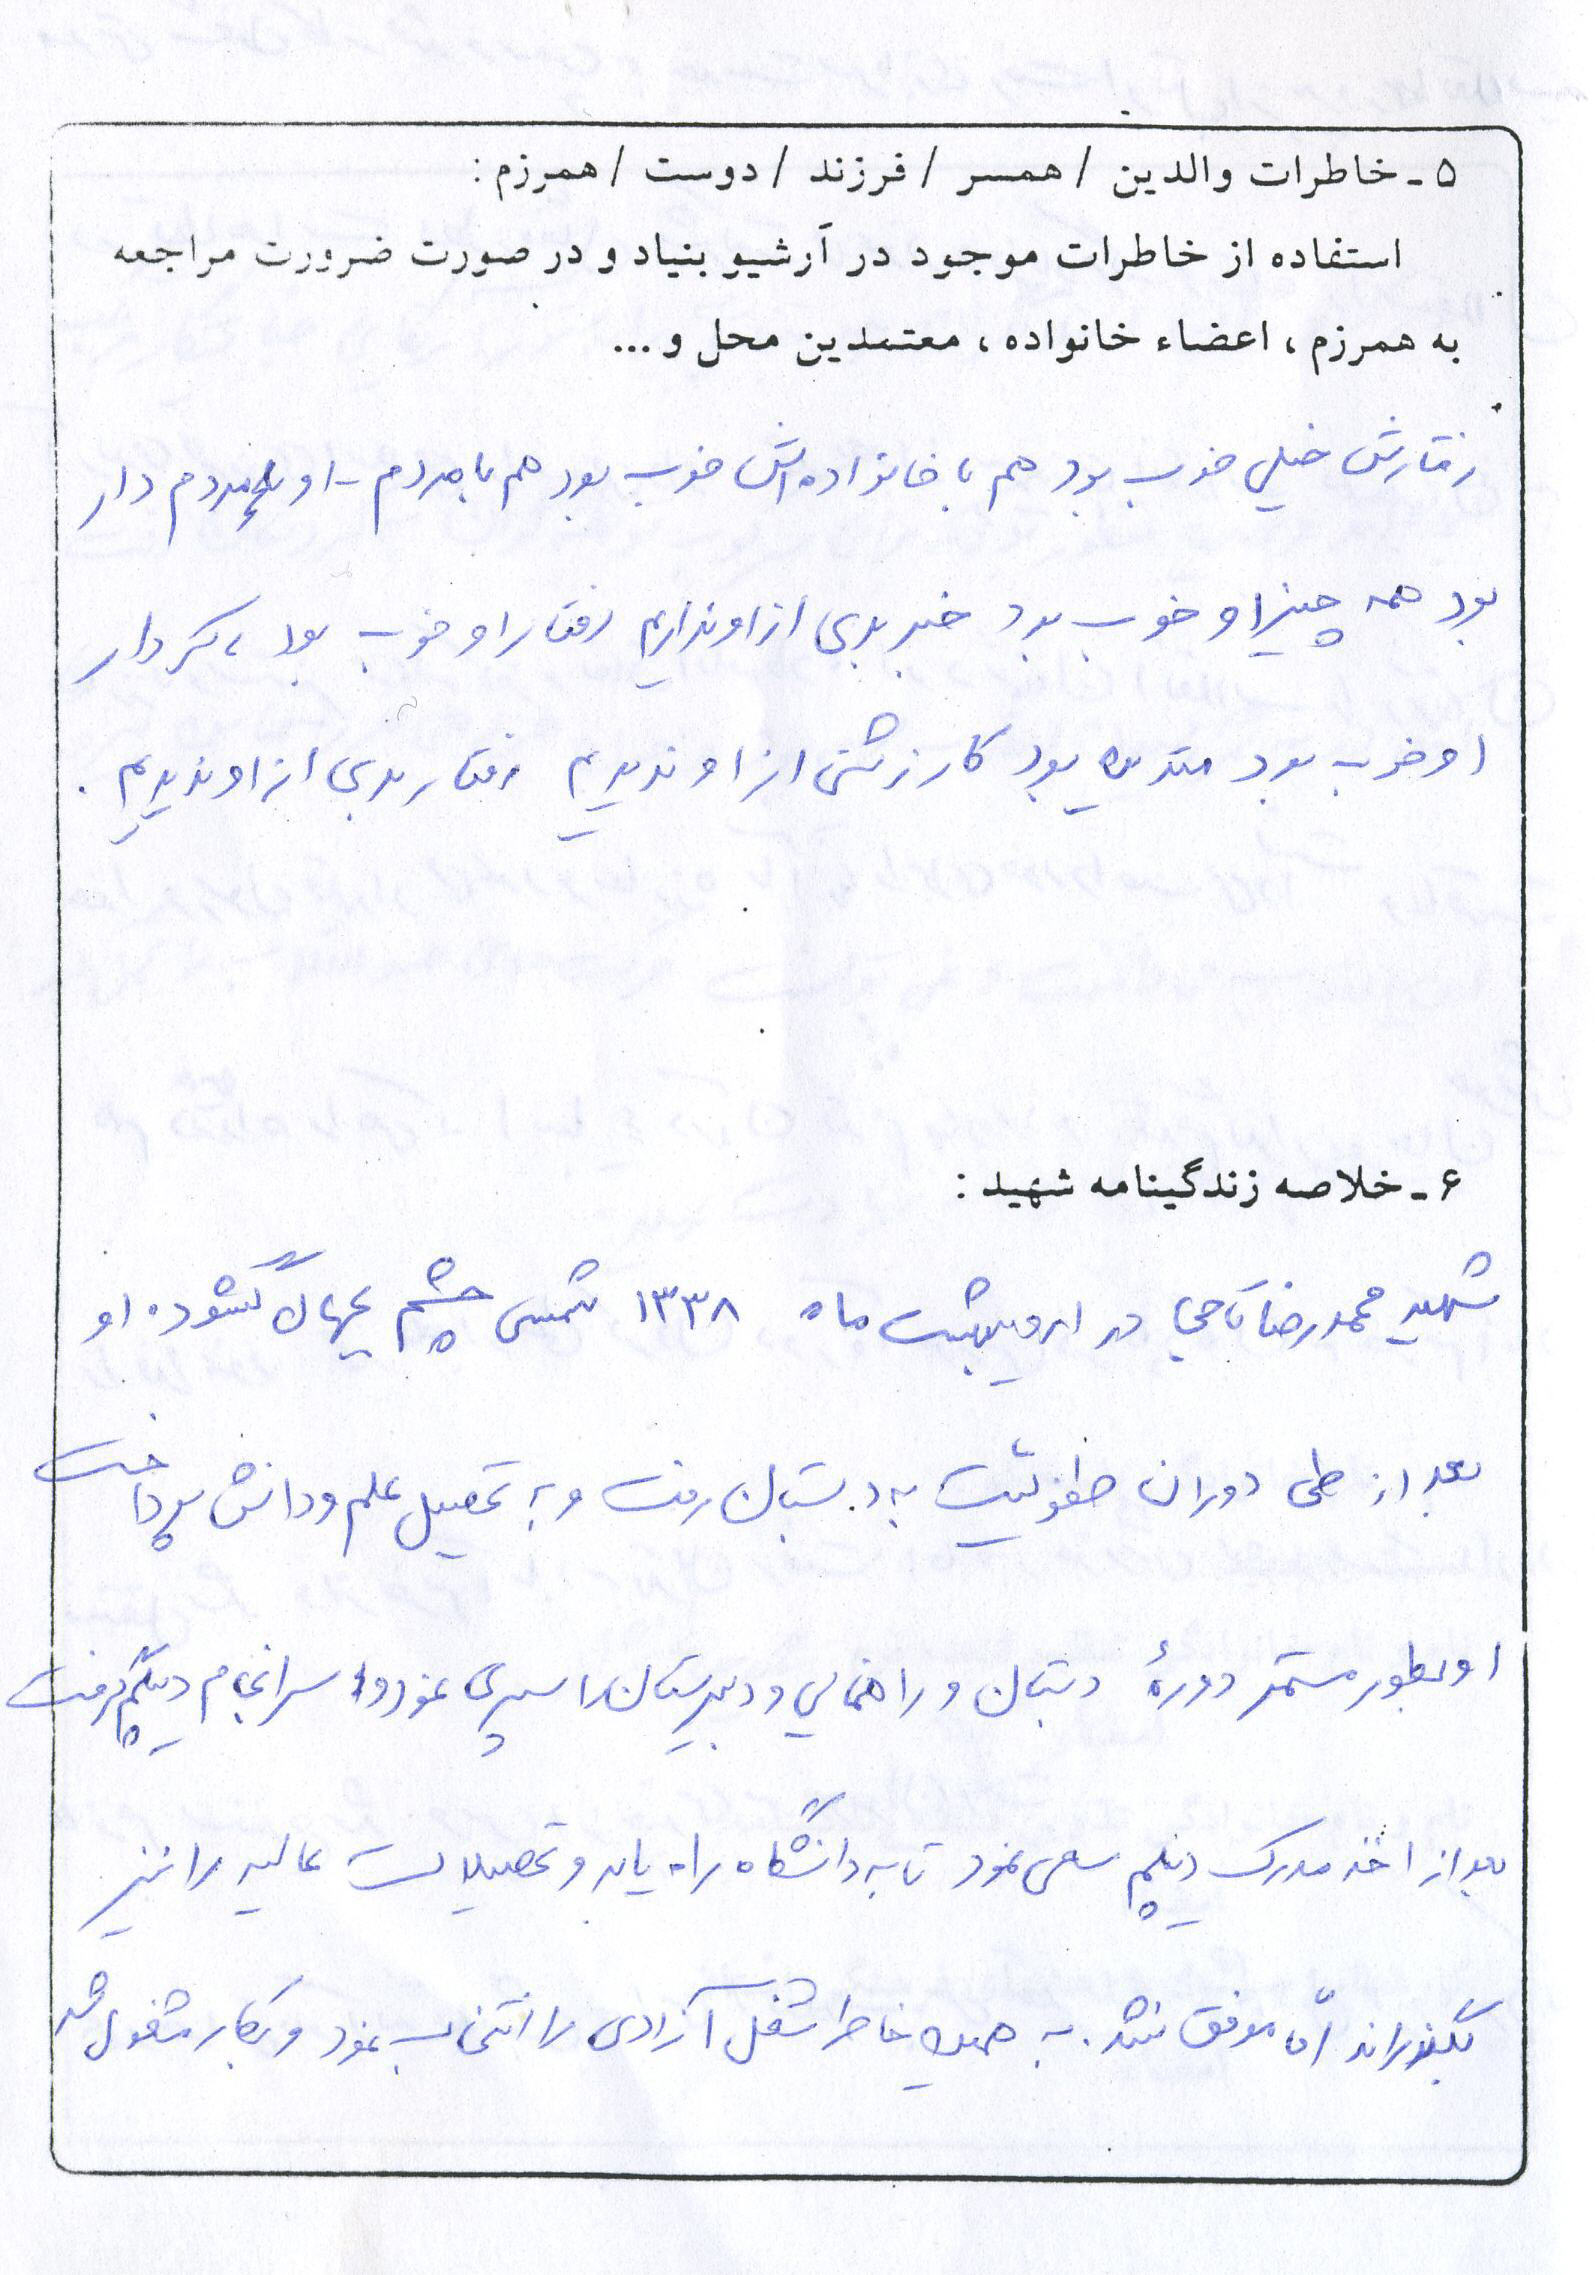 ۵ - خاطرات والدین / همسر / فرزند / دوست / همرزم :
استفاده از خاطرات موجود در آرشیو بنیاد و در صورت ضرورت مراجعه
به همرزم ، اعضاء خانواده ، معتمدین محل و ...
رفتارش خیلی خوب بود هم با خانواده اش خوب بود هم با مردم - او مردم دار
بود همه چیز او خوب بود خبر بدی از او نداریم رفتار او خوب بود ، کردار
او خوب بود متدین بود کار زشتی از او ندیدیم رفتار بدی از او ندیدیم .
۶ - خلاصه زندگینامه شهید :
شهید محمدرضا تاجی در اردیبهشت ماه ۱۳۳۸ شمسی چشم بجهان گشوده او
بعد از طی دوران طفولیت به دبستان رفت و به تحصیل علم و دانش پرداخت
او بطور مستمر دورهٔ دبستان و راهنمایی و دبیرستان را سپری نمود و سرانجام دیپلم گرفت
بعد از اخذ مدرک دیپلم سعی نمود تا به دانشگاه راه یابد و تحصیلات عالیه را نیز
بگذراند امّا موفق نشد . به همین خاطر شغل آزادی را انتخاب نمود و بکار مشغول شد